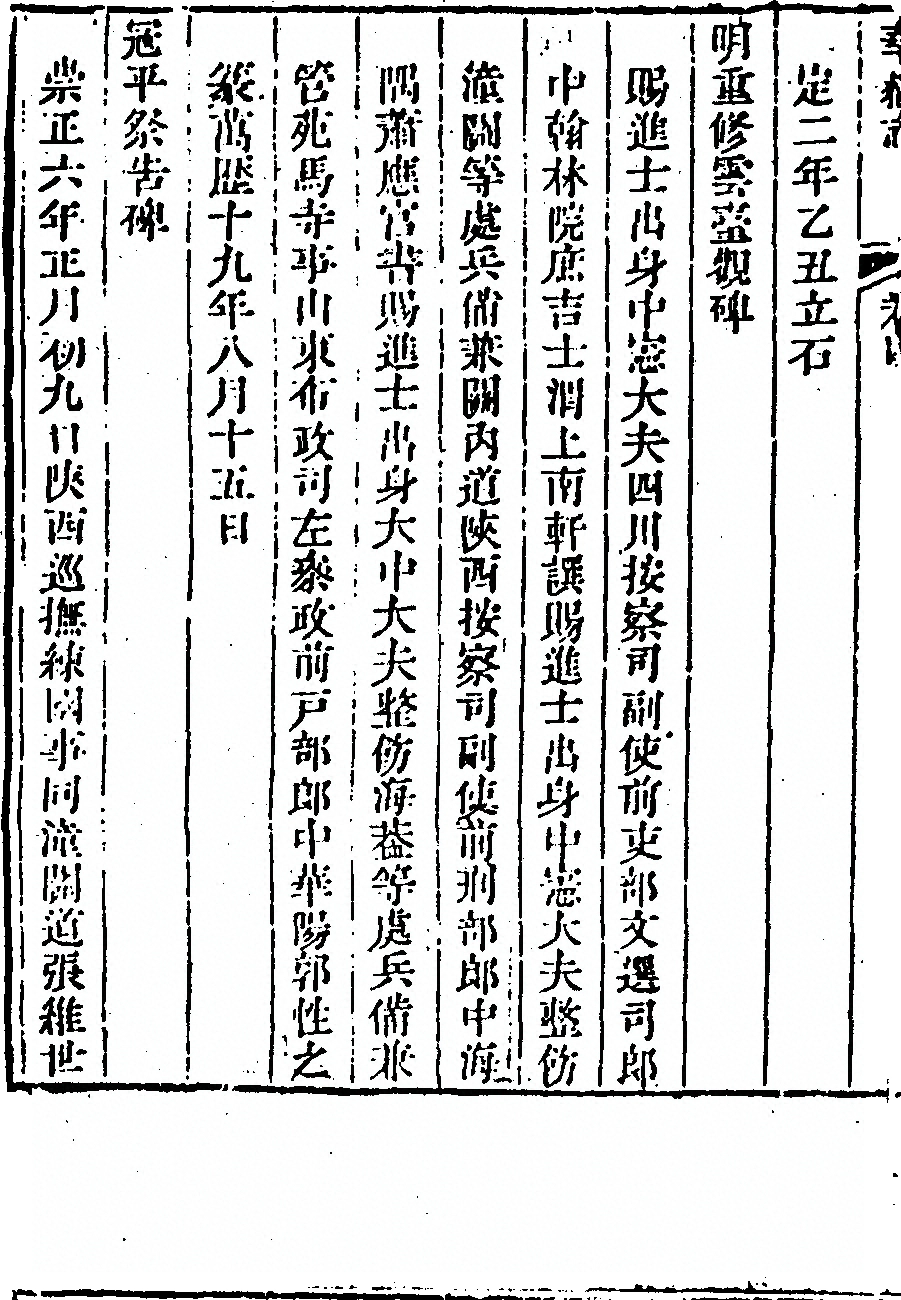 定二年乙丑立石
明重修雲臺觀碑
賜進士出身中憲大夫四川按察司副使前吏部文選司郎
中翰林院庶吉士渭上南軒譔賜進士出身中憲大夫整飭
潼關等處兵備兼關內道陝西按察司副使前刑部郎中海
隅蕭應宮書賜進士出身大中大夫整飭海葢等處兵備兼
管苑馬寺事山東布政司左叅政前戸部郎中華陽郭性之
篆萬歷十九年八月十五日
冦平祭告碑
崇正六年正月初九日陝西巡撫練國事同潼關道張維世